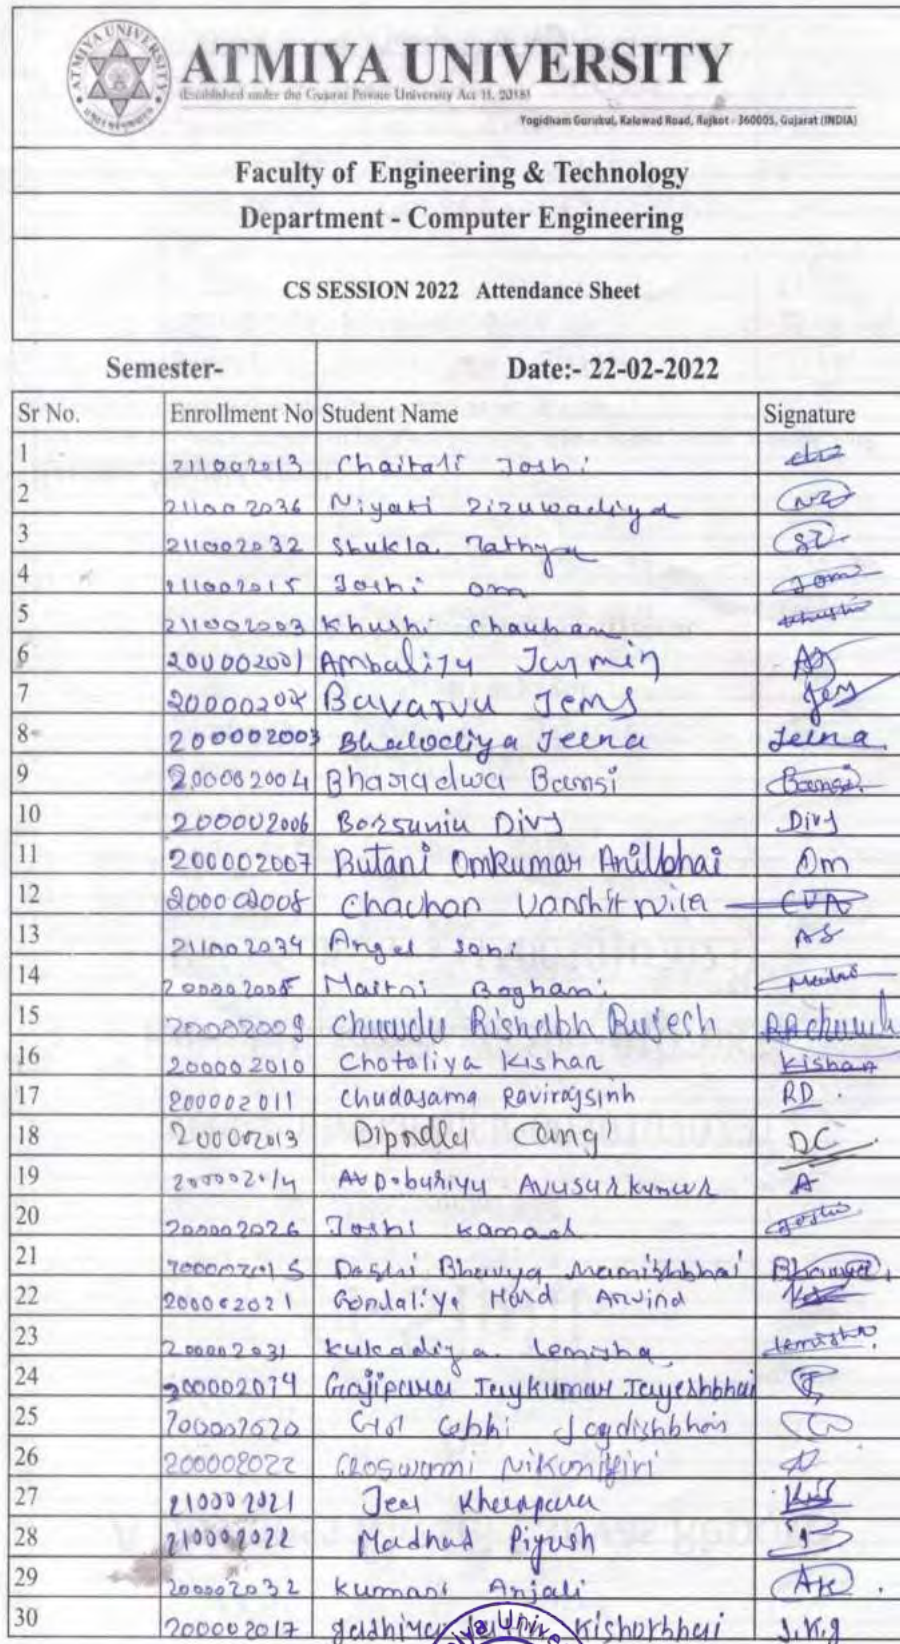 ATMIYA UNIVERSITY
(Established under the Gujarat Private University Act 11, 2018)
Yogidham Gurukul, Kalawad Road, Rajkot - 360005, Gujarat (INDIA)
Faculty of Engineering & Technology
Department - Computer Engineering
CS SESSION 2022 Attendance Sheet
Semester- Date:- 22-02-2022
Sr No. Enrollment No Student Name Signature
1 211002013 Chaitali Joshi
2 211002036 Niyati Zizuwadiya NZ
3 211002032 Shukla Tathya
4 211002015 Joshi om Jom
5 211002003 Khushi Chauhan Khushi
6 200002001 Ambaliya Jaymin AJ
7 Bavarva Jems Jey
8 200002003 Bhalodiya Jeena Jeena
9 200002004 Bharadwa Bansi Bansi
10 200002006 Borsaniya Divy Divy
11 200002007 Butani Omkumar Anilbhai Om
12 200002008 Chauhan CVA
13 211002034 Angel Soni AS
14 200002005 Maitri Baghani Maitri
15 200002009 Rishabh Rajesh
16 200002010 Chotaliya Kishan Kishan
17 200002011 Chudasama Ravirajsinh RD
18 200002013 DC
19 200002014 A
20 200002026 Joshi Joshi
21 200002015 Doshi Bhavya Bhavya
22 200002021 Gondaliya Hard Arvind
23 200002031 Kukadiya Lemisha Lemisha
24 Gajipara Jaykumar Jayeshbhai
25 200002020 Jagdishbhai
26 200002022 Goswami Nikunjgiri
27 210002021 Jeal Kheenpara
28 210002022 Madhad Piyush
29 200002032 Kumari Anjali
30 200002017 Kishorbhai J.K.g